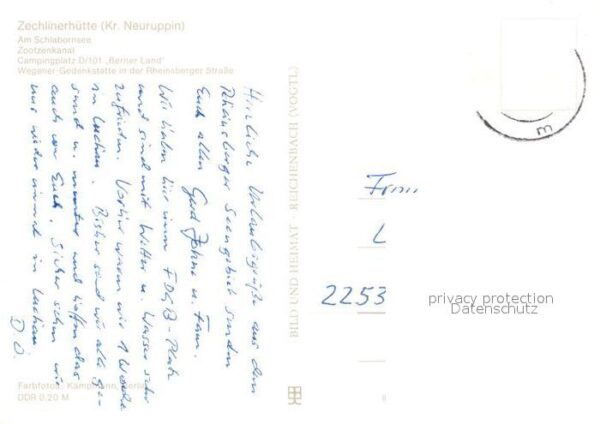 Zechlinerhütte (Kr. Neuruppin)
Am Schlabornsee
Zootzenkanal
Campingplatz D/101 „Berner Land"
Wegener-Gedenkstätte in der Rheinsberger Straße
Herzliche Urlaubsgrüße aus dem
Rheinsberger Seengebiet senden
Euch allen Gerd Johne u. Fam.
Wir haben hier einen FDGB-Platz
und sind mit Wetter u. Wasser sehr
zufrieden. Vorher waren wir 1 Woche
in Luckau. Bisher sind wir alle ge-
sund u. munter und hoffen das
auch von Euch. Sicher sehen wir
uns wieder einmal in Luckau
D. O.
Farbfotos: Kampmann, Berlin
DDR 0.20 M
BILD UND HEIMAT REICHENBACH (VOGTL)
Frau
L
2253
privacy protection
Datenschutz